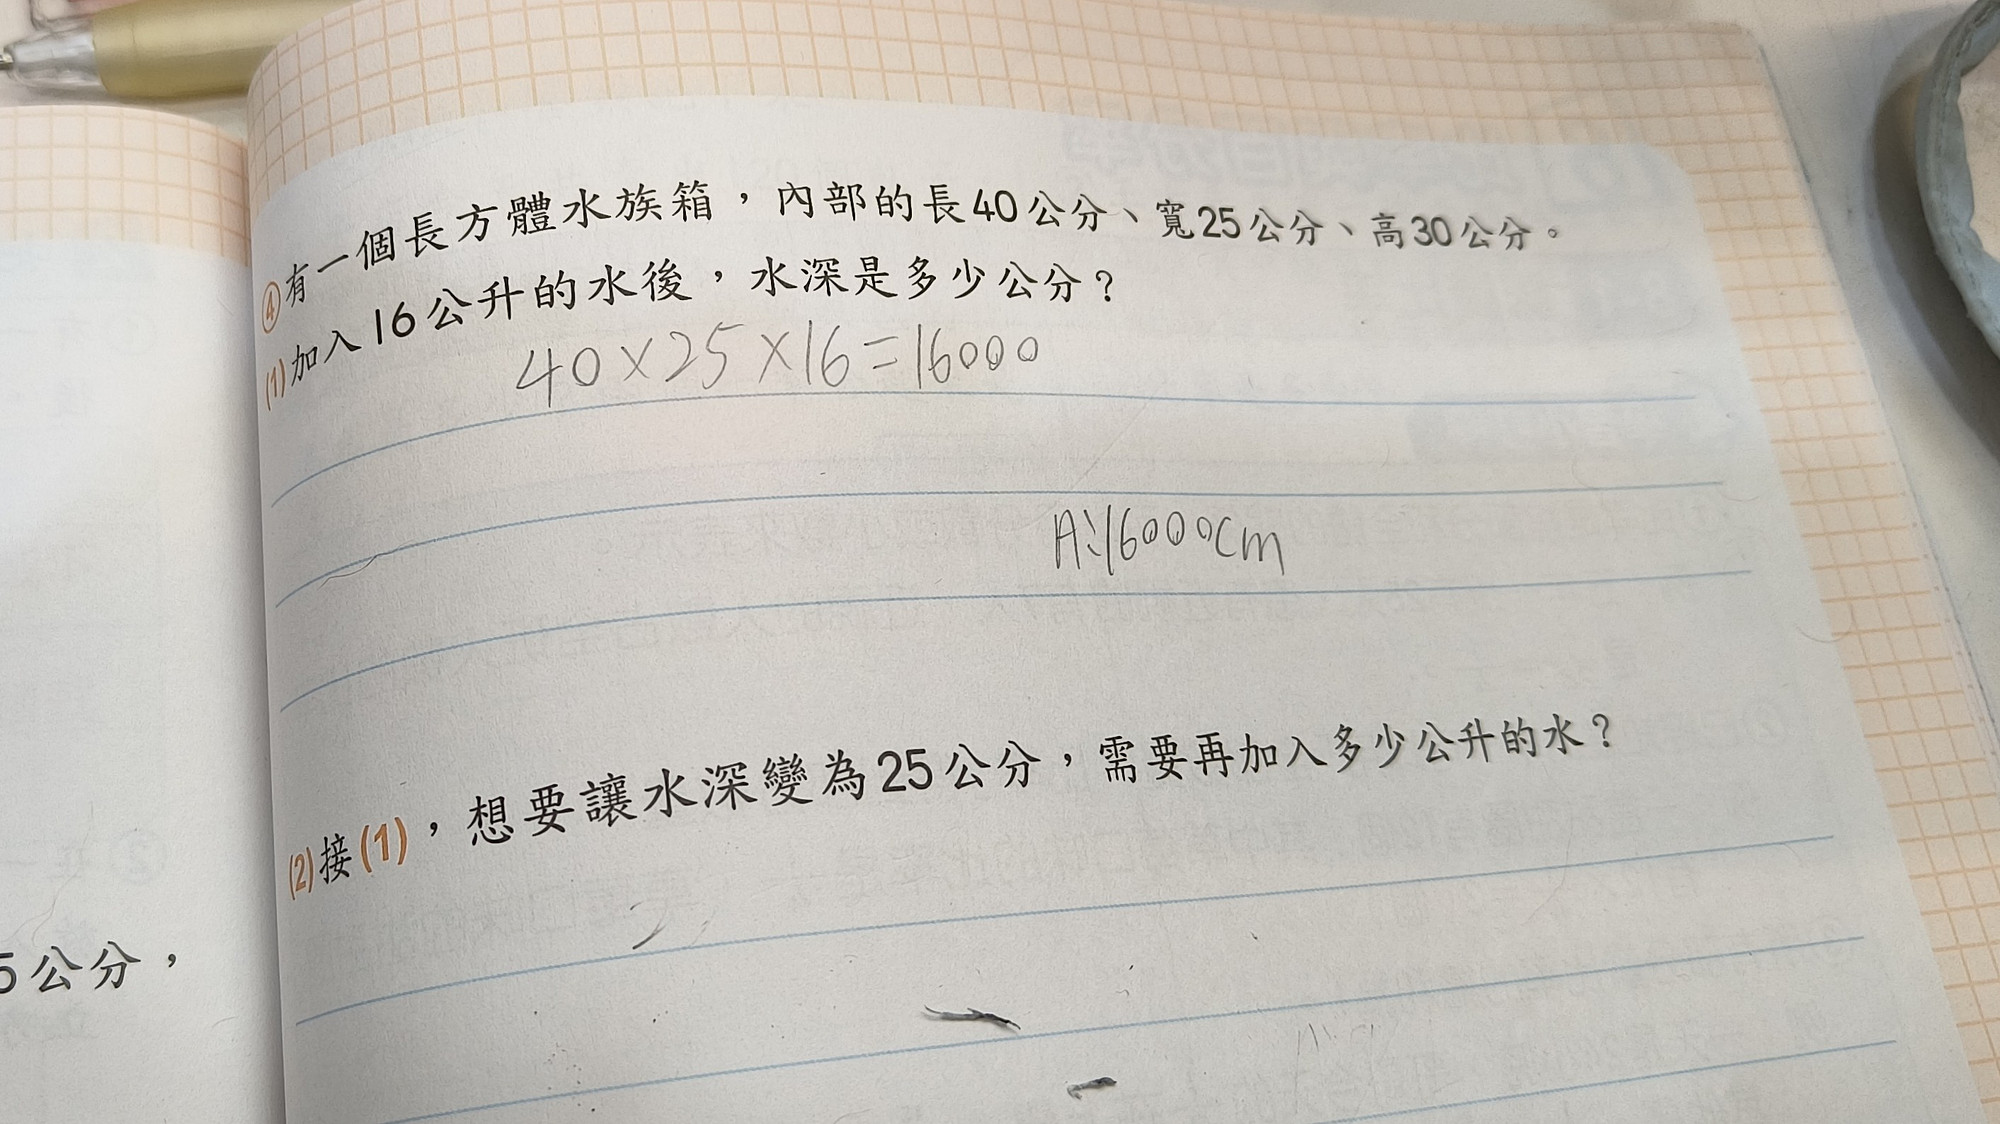 ④有一個長方體水族箱，內部的長40公分、寬25公分、高30公分。
(1)加入16公升的水後，水深是多少公分？
40×25×16=16000
A:16000cm
(2)接(1)，想要讓水深變為25公分，需要再加入多少公升的水？
5公分，